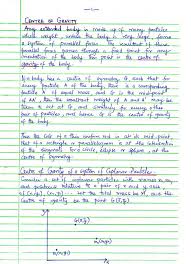 CENTER OF GRAVITY
Any extended body is made up of many particles
whose weight, unless the body is very large, forms
a system of parallel forces. The resultant of these
parallel forces passes through a fixed point for any
orientation of the body. This point is the centre of
gravity of the body.
If a body has a centre of symmetry G such that for
every particle A of the body, there is a corresponding
particle A' of equal mass, and G is the midpoint
of AA', then the resultant weight of A and A' may be
taken to act at G and similarly for every other
pair of particles, and hence G is the centre of gravity
of the body.
Thus the CoG of a thin uniform rod is at its mid-point,
that of a rectangle or parallelogram is at the intersection
of the diagonals; for a circle, ellipse or sphere, at the
centre of symmetry.
Centre of Gravity of a System of Coplanar Particles
Consider a set of coplanar particles with masses
and positions relative to a pair of x and y axis
of let the total mass be M, and the
centre of gravity be the point G(x̄,ȳ)
G(x̄,ȳ)